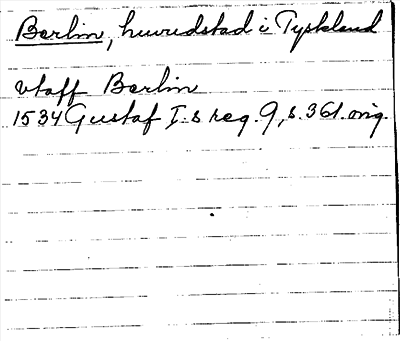 Berlin, huvudstad i Tyskland
vtaff Berlin
1534 Gustaf I.s reg. 9, s. 361. orig.